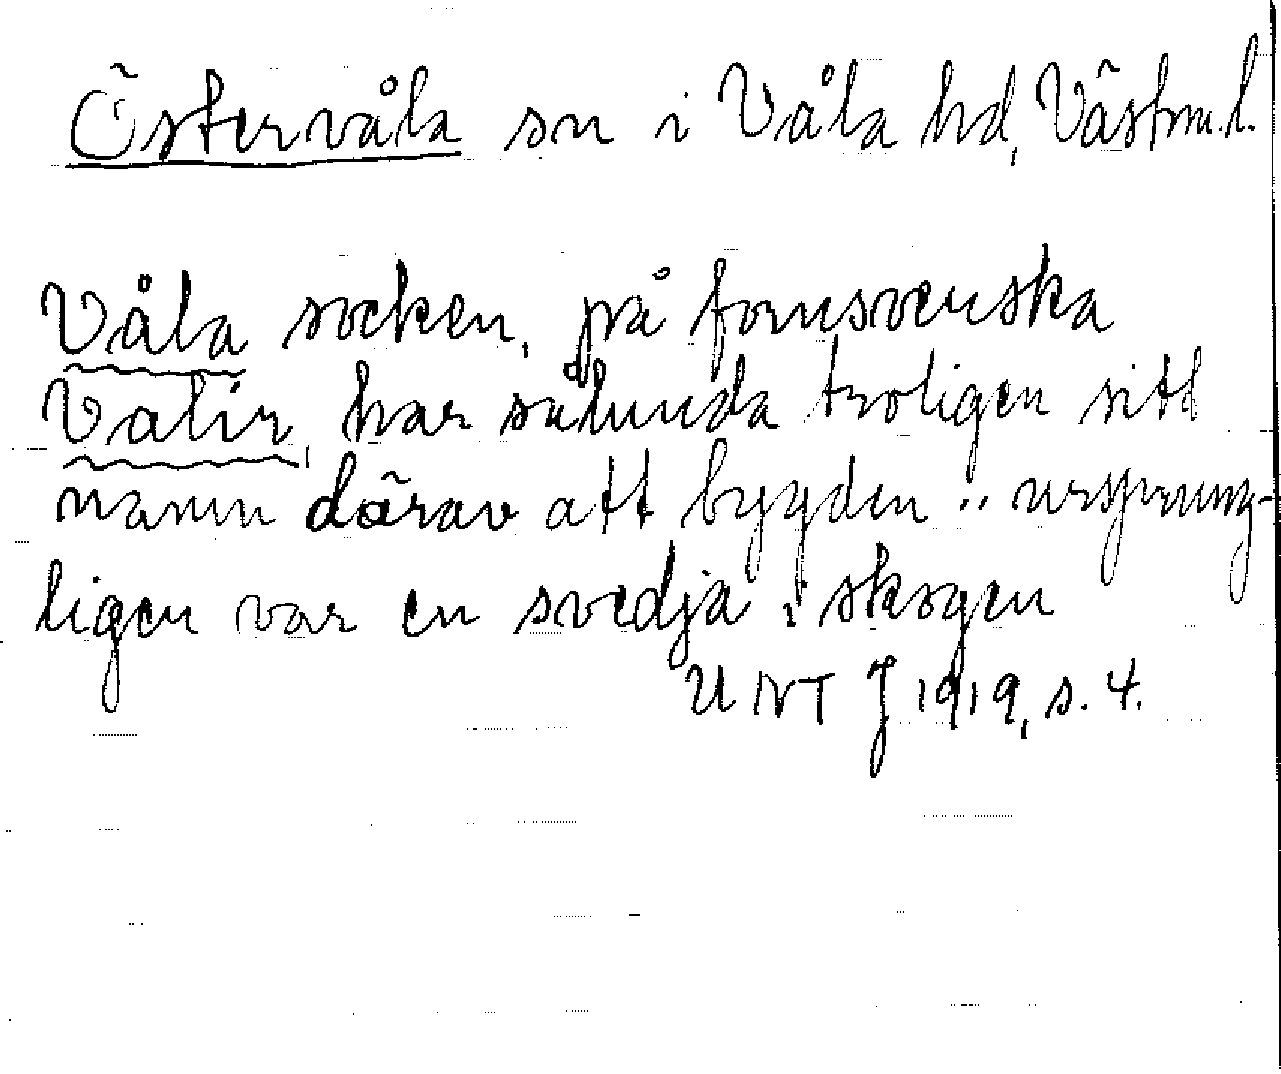 Östervåla sn i Våla hd, Västm.l.
Våla socken, på fornsvenska
Valir, har sålunda troligen sitt
namn därav att bygden .. ursprung-
ligen var en svedja i skogen
UNT J 1919, s. 4.